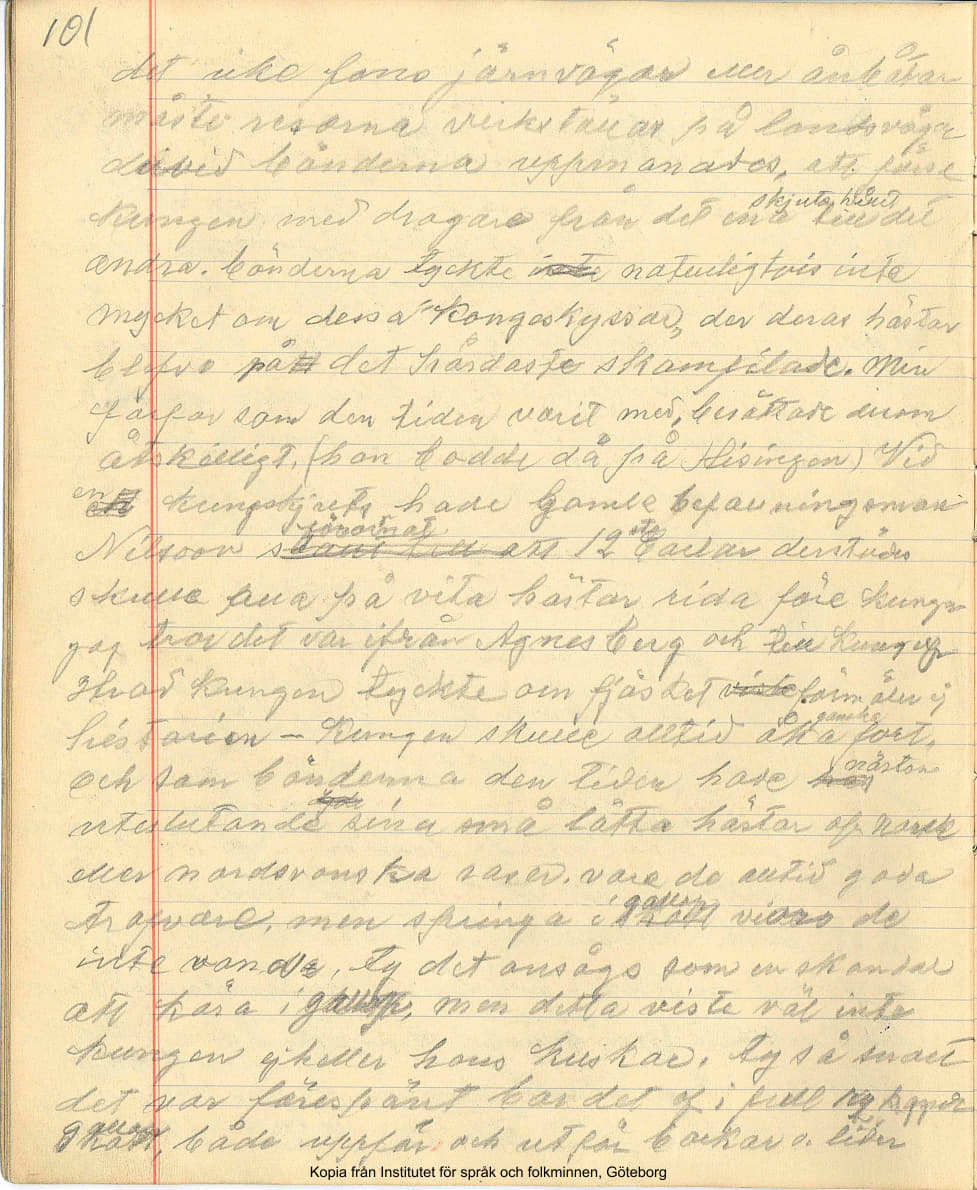 101
det icke fans järnvägar eller ångbåtar
måste resorna verkställas på landsvägar
dervid bönderna uppmanades, att förse
skjutshåll
kungen med dragare från det ena till det
andra. bönderna tyckte inte naturligtvis inte
mycket om dessa "Kongaskyssar", der deras hästar
blefvo på det hårdaste skamfilade. Min
farfar som den tiden varit med, berättade derom
åtskilligt, (han bodde då på Hisingen) Vid
en kungskjuts hade gamle befallningsman
förordnat
Nilsson att 12 sta backar derstädes
skulle alla på vita hästar rida före kungen
jag tror det var ifrån Agnesberg och till Kungelf
Hvad kungen tyckte om fjäsket förmäler ej
histarien – Kungen skulle alltid åka ganska fort,
och som bönderna den tiden hade nästan
uteslutande sina små lätta hästar af norsk
eller nordsvenska raser. vare de alltid goda
trafvare, men springa i gallop vicero de
inte vande, ty det ansågs som en skandal
att köra i gallopp, men detta viste väl inte
kungen ejheller hans kuskar. ty så snart
det var förespänt bar det af i full
gallopp, både uppför och utför backar o. lider
Kopia från Institutet för språk och folkminnen, Göteborg